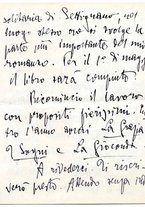 solitaria di Settignano, nel
luogo stesso ove si svolge la
parte più importante del mio
romanzo. Per il 1° di maggio
il libro sarà compiuto.
Ricomincio il lavoro
con propositi fierissimi.
tro l'anno anche La
Sogni e La Gioconda
A rivederci. Ti
verò presto. Attendo senza